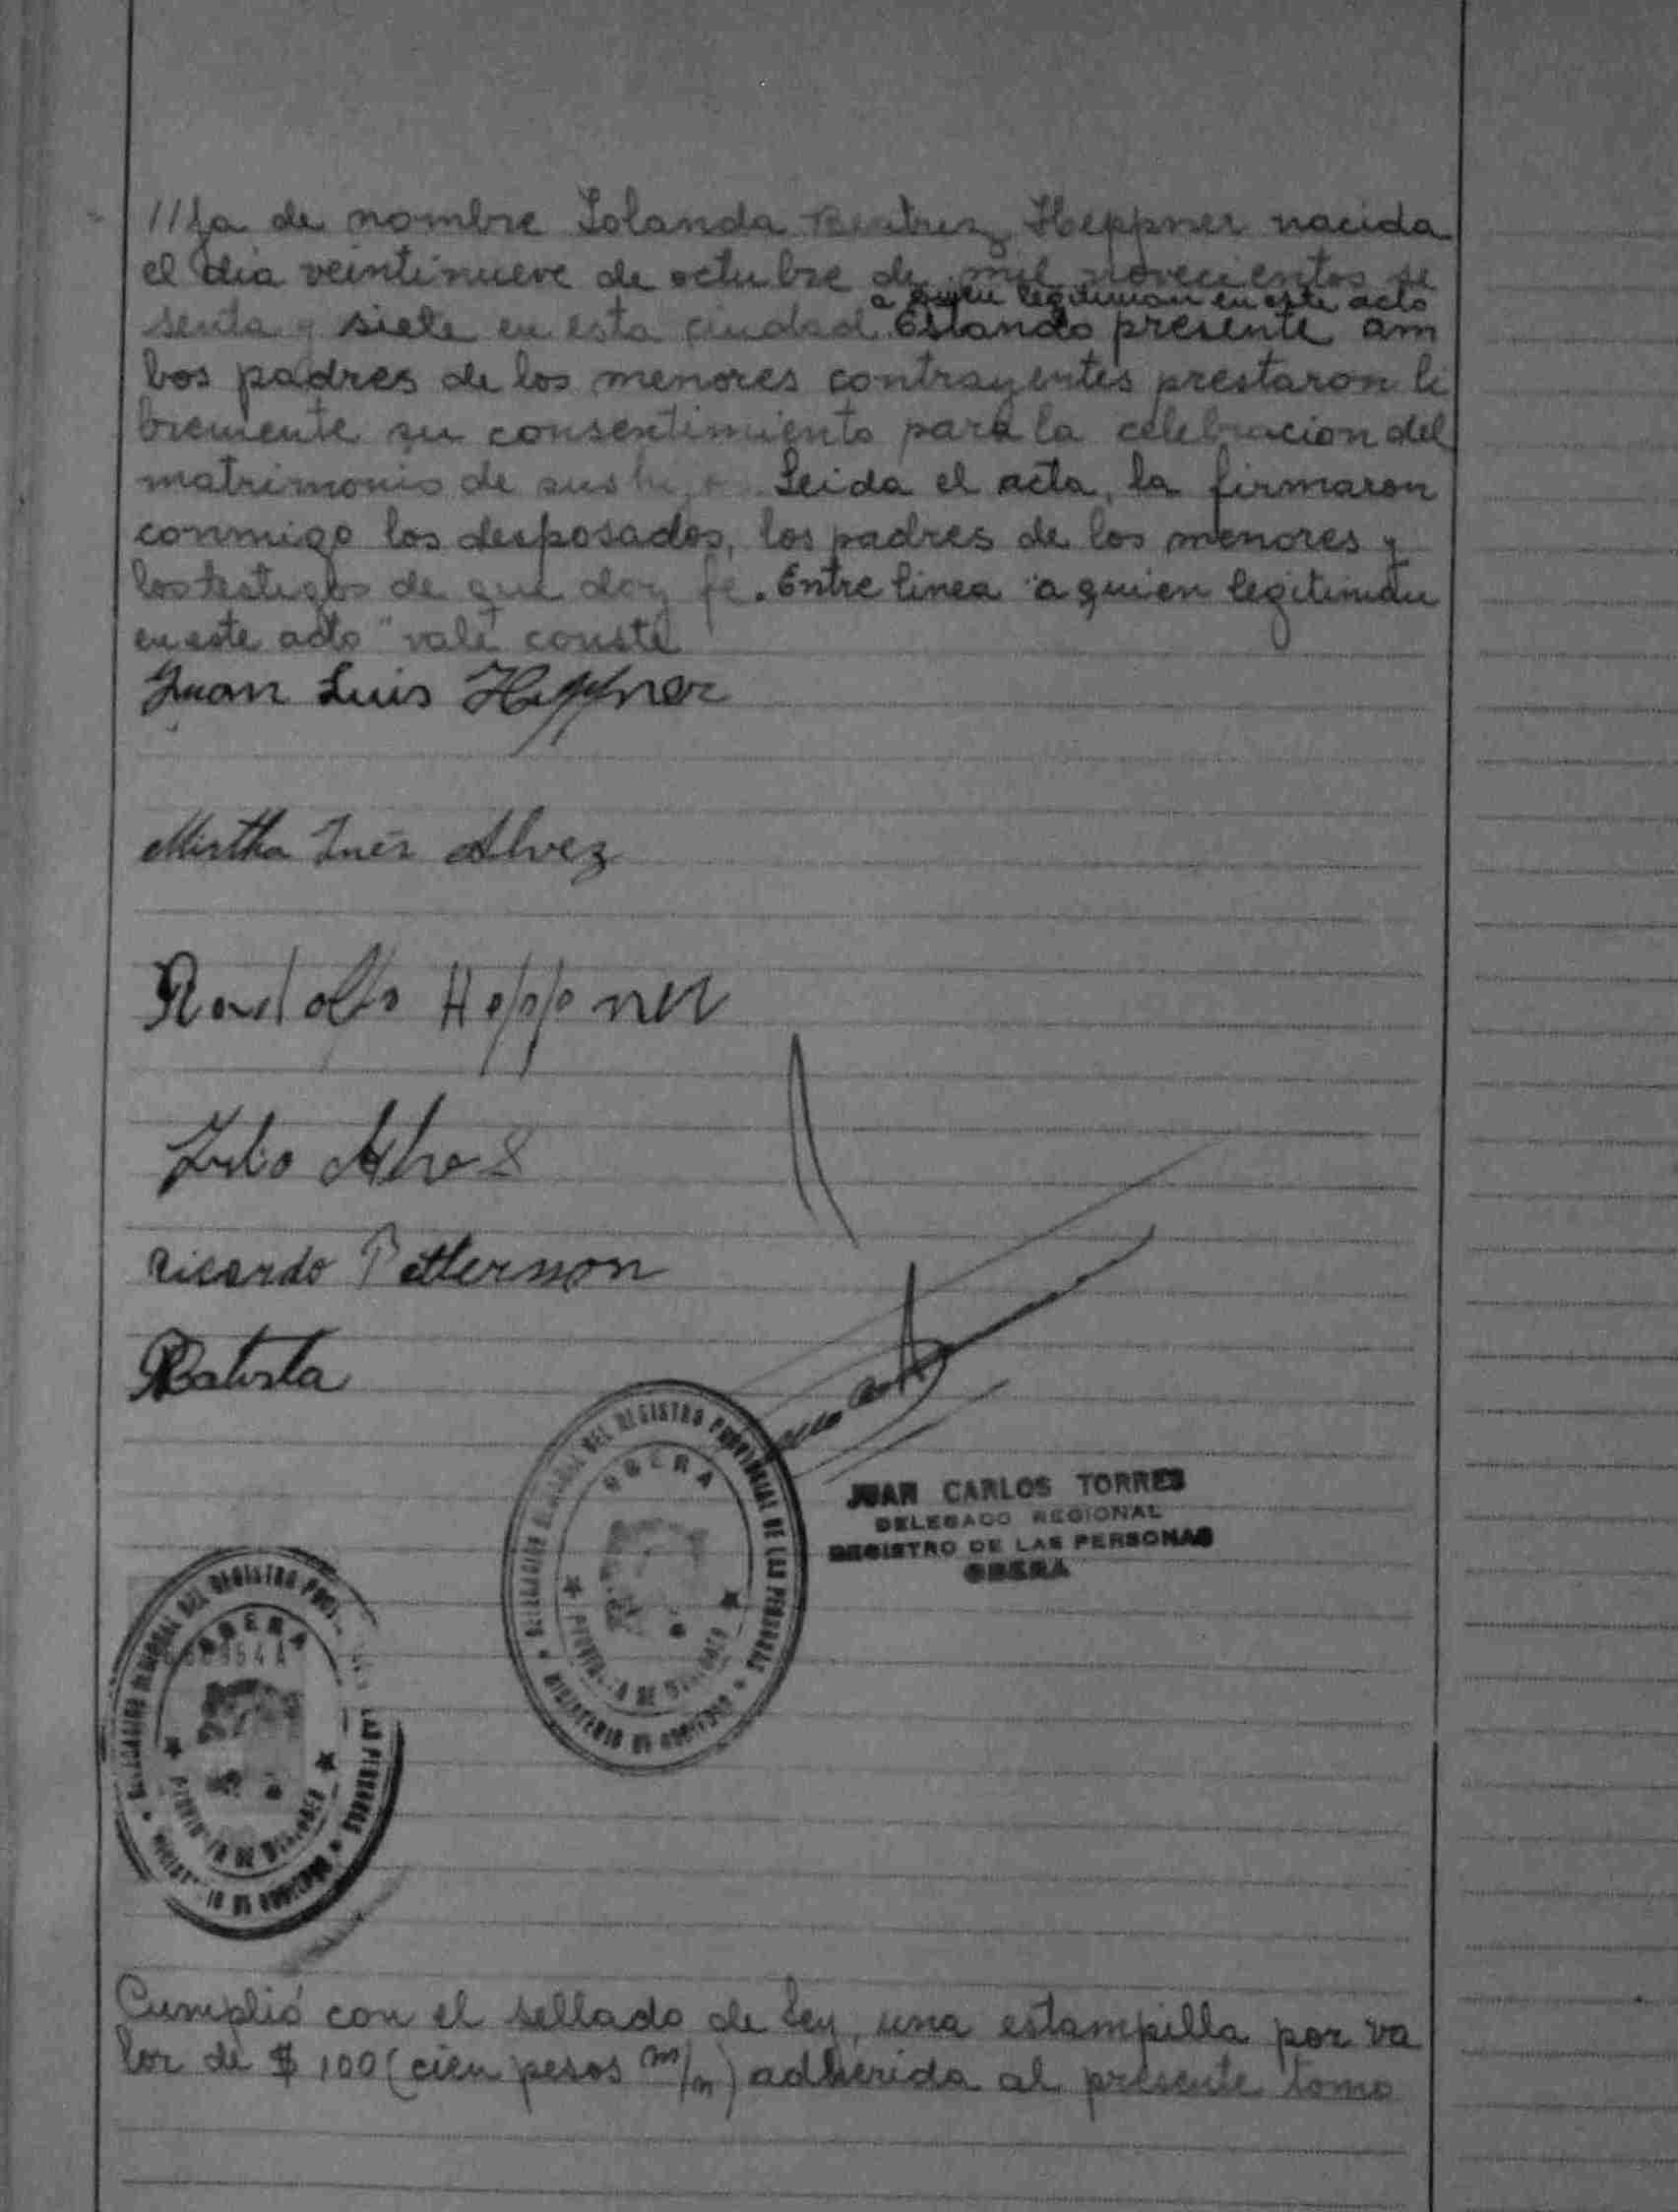 //ja de nombre Iolanda Beatriz Heppner nacida
el dia veintinueve de octubre de mil novecientos se
a quien legitiman en este acto
senta y siete en esta ciudad. Estando presente am
bos padres de los menores contrayentes prestaron li
bremente su consentimiento para la celebracion del
matrimonio de sus hijos. Leida el acta, la firmaron
conmigo los desposados, los padres de los menores y
los testigos de que doy fe. Entre linea "a quien legitiman
en este acto" vale conste
Juan Luis Heppner
Mirtha Inés Alvez
Rodolfo Heppner
Julio Alvez
Ricardo Petterson
Batista
DEL REGISTRO PROVINCIAL DE LAS PERSONAS
OBERA
PROVINCIA DE MISIONES
MINISTERIO DE GOBIERNO
JUAN CARLOS TORRES
DELEGADO REGIONAL
REGISTRO DE LAS PERSONAS
OBERA
DELEGACION REGIONAL DEL REGISTRO LAS PERSONAS
OBERA
PROVINCIA DE MISIONES
MINISTERIO DE GOBIERNO
Cumplió con el sellado de Ley, una estampilla por va
lor de $ 100 (cien pesos m/n) adherida al presente tomo